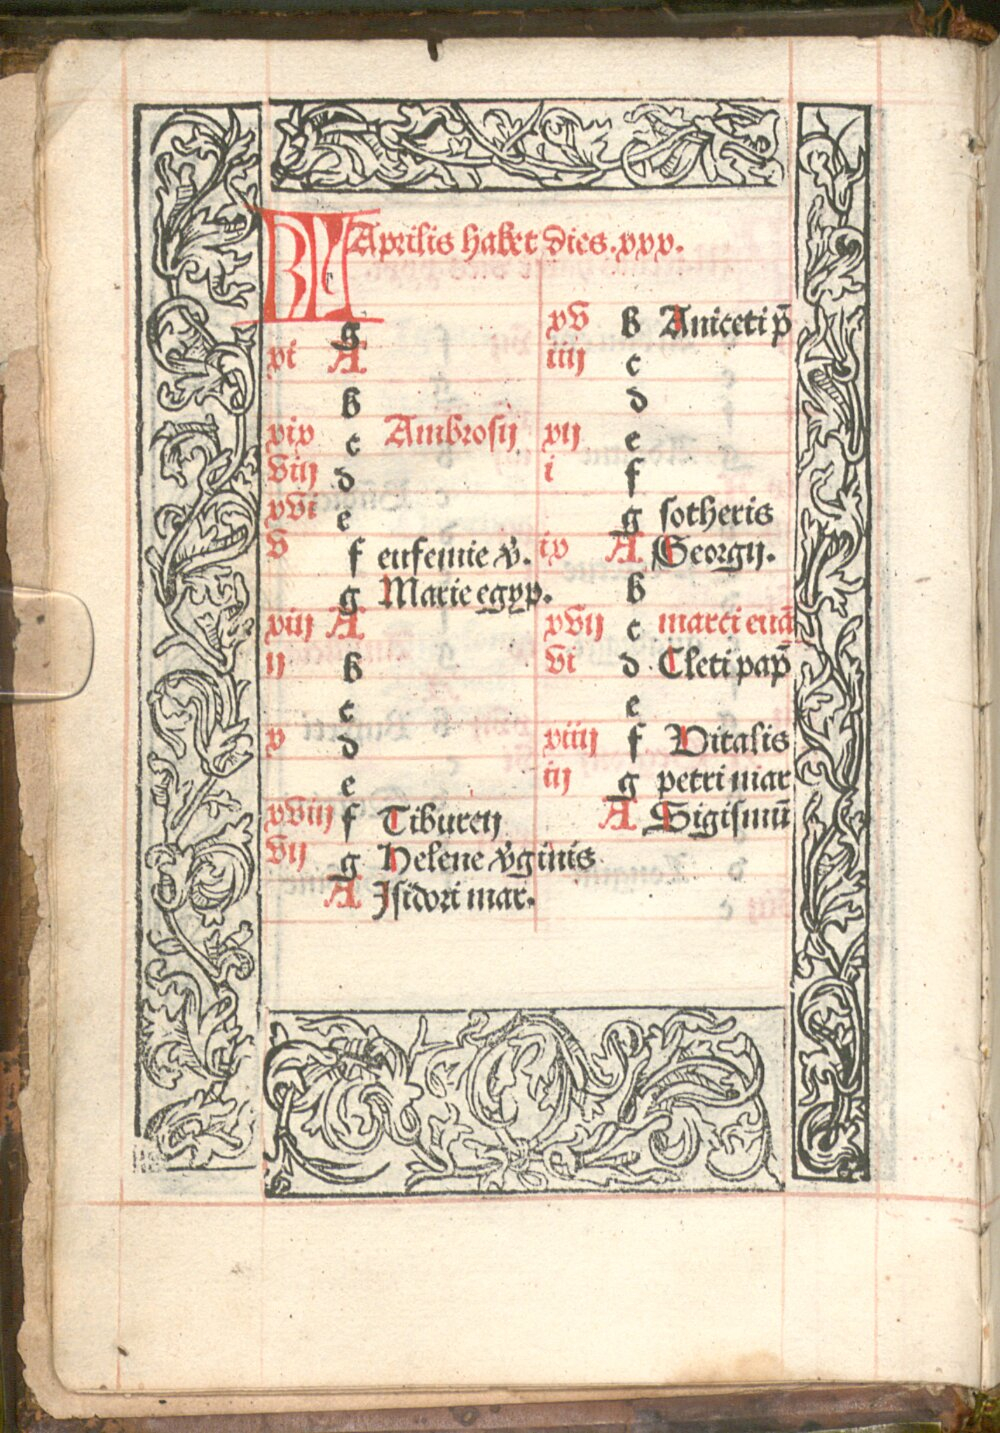 KL Aprilis habet dies.xxx.
g
xi A
b
xix c Ambrosij
viij d
xvi e
v f eufemie v̄.
g Marie egyp.
xiij A
ij b
c
x d
e
xviij f Tiburtij
vij g Helene v̄ginis
A Jsidori mar.
xv b Aniceti p̄
iiij c
d
xij e
i f
g sotheris
ix A Georgij.
b
xvij c marci euā
vi d Cleti pap̄
e
xiiij f Vitalis
iij g petri mar
A Sigismū